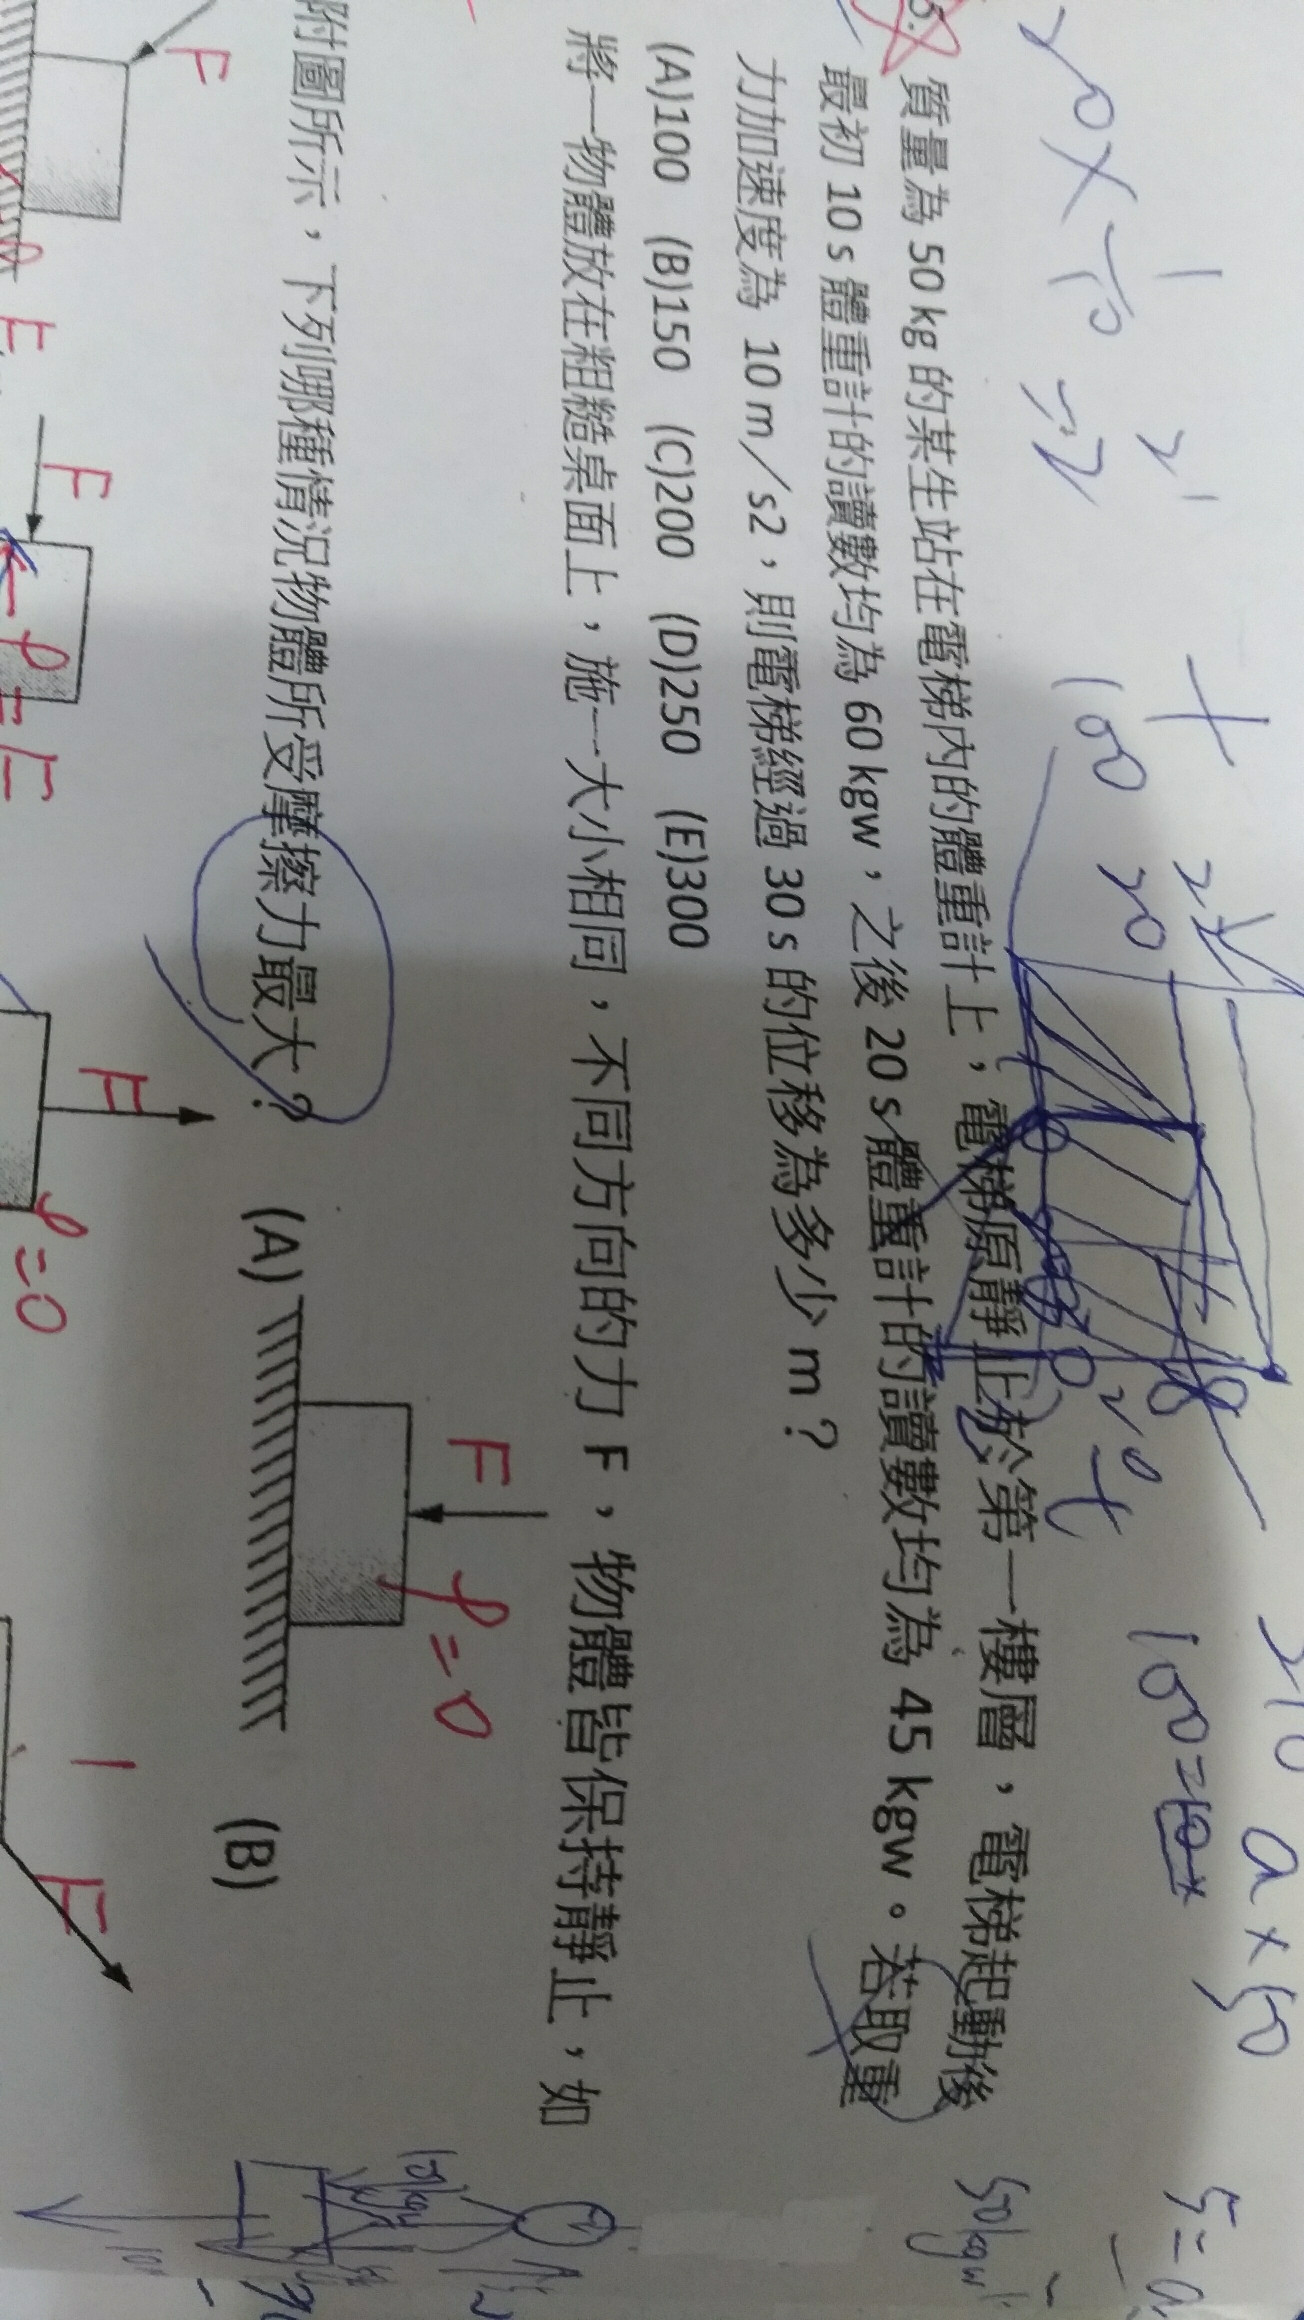 5.
質量為 50 kg 的某生站在電梯內的體重計上，電梯原靜止於第一樓層，電梯起動後
最初 10 s 體重計的讀數均為 60 kgw，之後 20 s 體重計的讀數均為 45 kgw。若取重
力加速度為 10 m／s2，則電梯經過 30 s 的位移為多少 m？
(A)100 (B)150 (C)200 (D)250 (E)300
將一物體放在粗糙桌面上，施一大小相同，不同方向的力 F，物體皆保持靜止，如
附圖所示，下列哪種情況物體所受摩擦力最大？ (A) (B)
F
F
F
F
F
f=0
f=0
100 20
20 t
a×50
50kgw